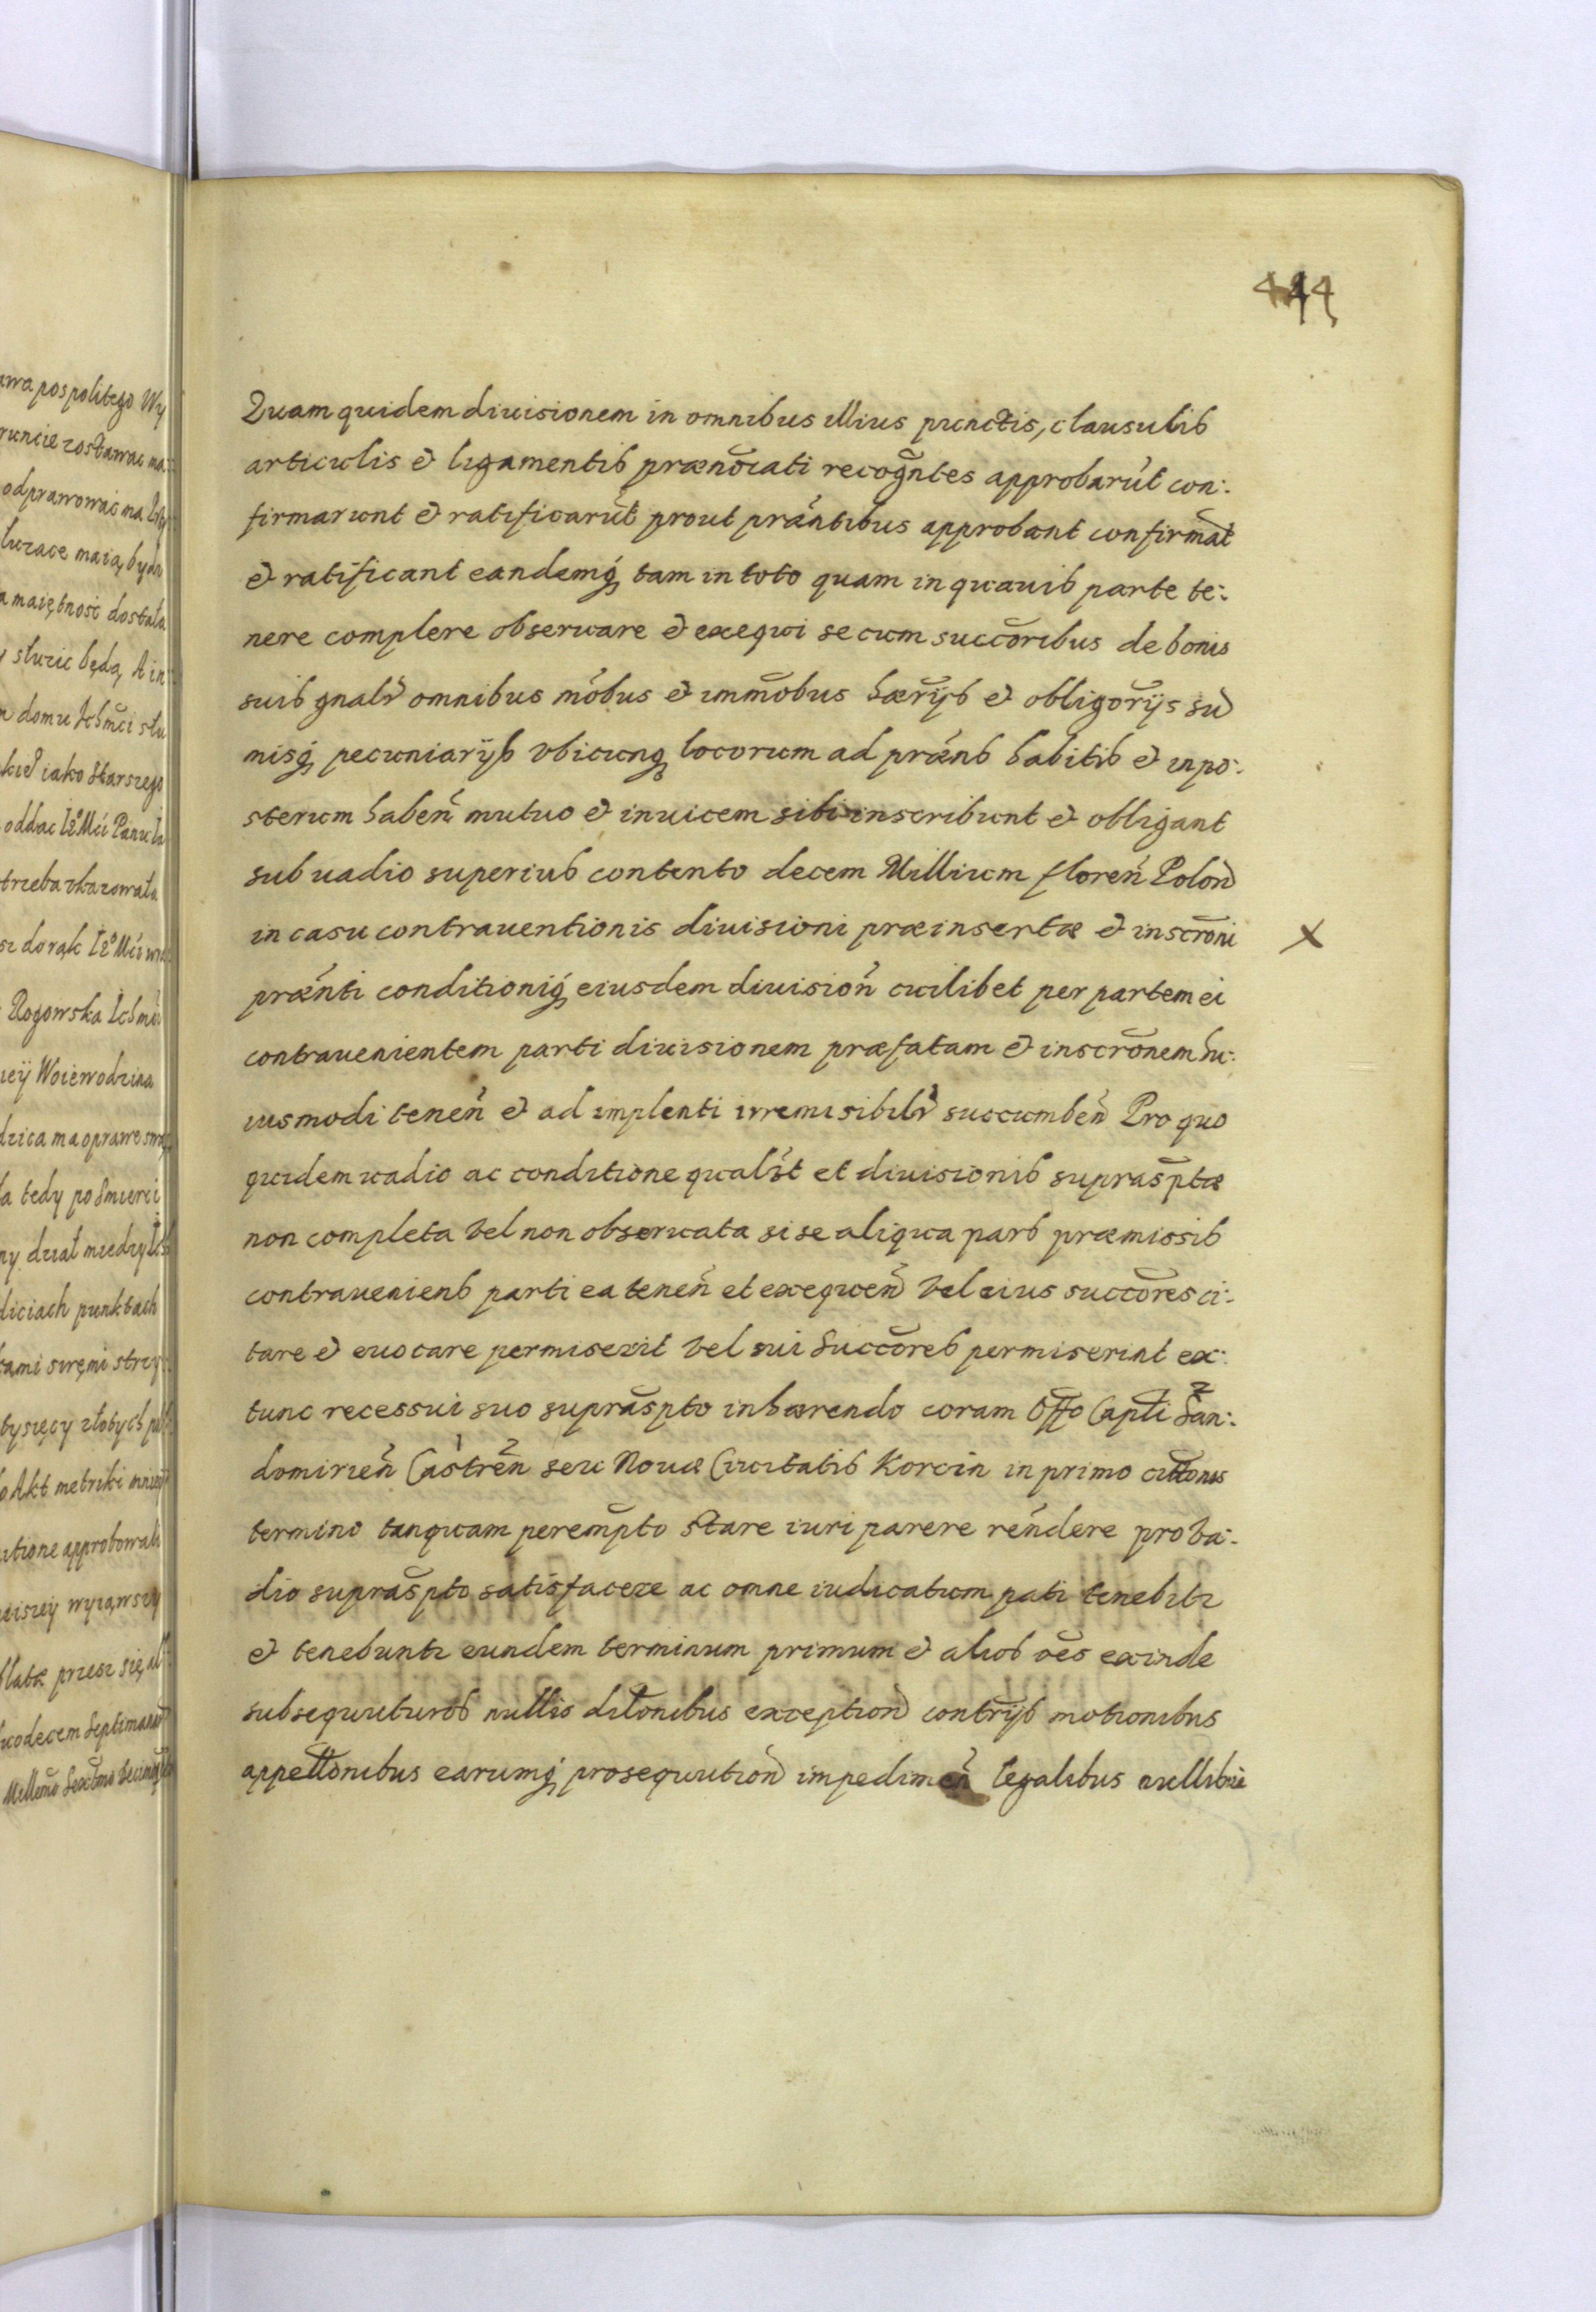 444
Quam quidem diuisionem in omnibus illius punctis, clausulis
articulis et ligamentis prænoĩati recogñtes approbarũt con:
firmarunt et ratificarũt prout præñtibus approbant confirmãt
et ratificant eandemq́ tam in toto quam in quauis parte te:
nere complere obseruare et exequi se cum succõribus de bonis
suis gnalr̃ omnibus mõbus et immõbus hærijs et obligõrijs su͂
misq́ pecuniarijs vbicunq locorum ad præñs habitis et in po:
sterum haben̄ mutuo et inuicem sibi inscribunt et obligant
sub uadio superius contento decem Millium floren̄ Polon̄
in casu contrauentionis diuisioni præinsertæ et inscrõni
X
præñti conditioniq́ eiusdem diuision̄ cuilibet per partem ei
contrauenientem parti diuisionem præfatam et inscrõnem hu:
iusmodi tenen̄ et adimplenti irremisibilr̃ succumben̄ Pro quo
quidem uadio ac conditione qualr̃t et diuisionis suprasp̃tæ
non completa vel non obseruata si se aliqua pars præmissis
contraueniens parti ea tenen̄ et exequen̄ vel eius succõres ci:
tare et euocare permiserit vel sui Succõres permiserint ex:
tunc recessui suo suprasp̃to inhærendo coram Offo Capti San:
domirien̄ Castren̄ seu Nouæ Ciuitatis Korcin in primo cittõnis
termino tanquam perempto stare iuri parere reñdere pro va:
dio suprasp̃to satisfacere ac omne iudicatum pati tenebitr
et tenebuntr eundem terminum primum et alios oẽs exinde
subsequuturos nullis dilõnibus exception̄ contrijs motionibus
appellõnibus earumq́ prosequution̄ impedimen̄ legalibus nullibus